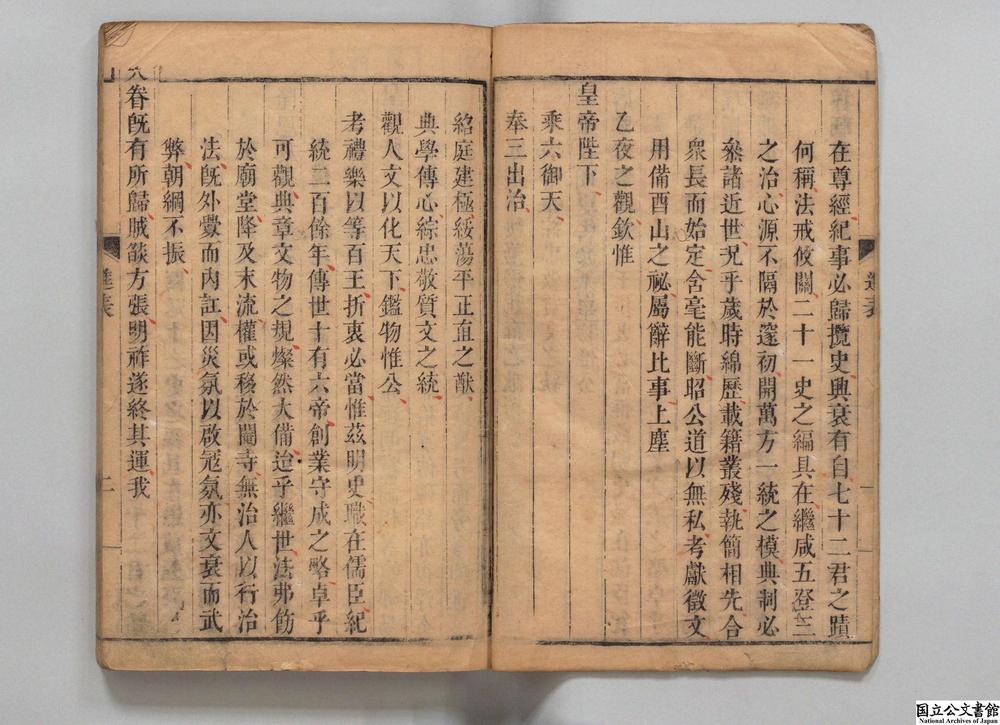 在尊經紀事必歸攬史典衰有自七十二君之蹟
何稱法戒攸關二十一史之編具在繼咸五登三
之治心源不隔於邃初開萬方一統之模典制必
叅諸近世况乎歲時綿歷載籍叢殘執簡相先合
衆長而始定含毫能斷昭公道以無私考獻徵文
用備酉山之祕屬辭比事上塵
乙夜之觀欽惟
皇帝陛下
乘六御天
奉三出治
進表
一
紹庭建極綏蕩平正直之猷
典學傳心綜忠敬質文之統
觀人文以化天下鑑物惟公
考禮樂以等百王折衷必當惟茲明史職在儒臣紀
統二百餘年傳世十有六帝創業守成之略卓乎
可觀典章文物之規燦然大備迨乎繼世法弗飭
於廟堂降及末流權或移於閹寺無治人以行治
法旣外釁而內訌因災氛以啟寇氛亦文衰而武
弊朝綱不振
天眷旣有所歸賊燄方張明祚遂終其運我
進表
二
国立公文書館
National Archives of Japan